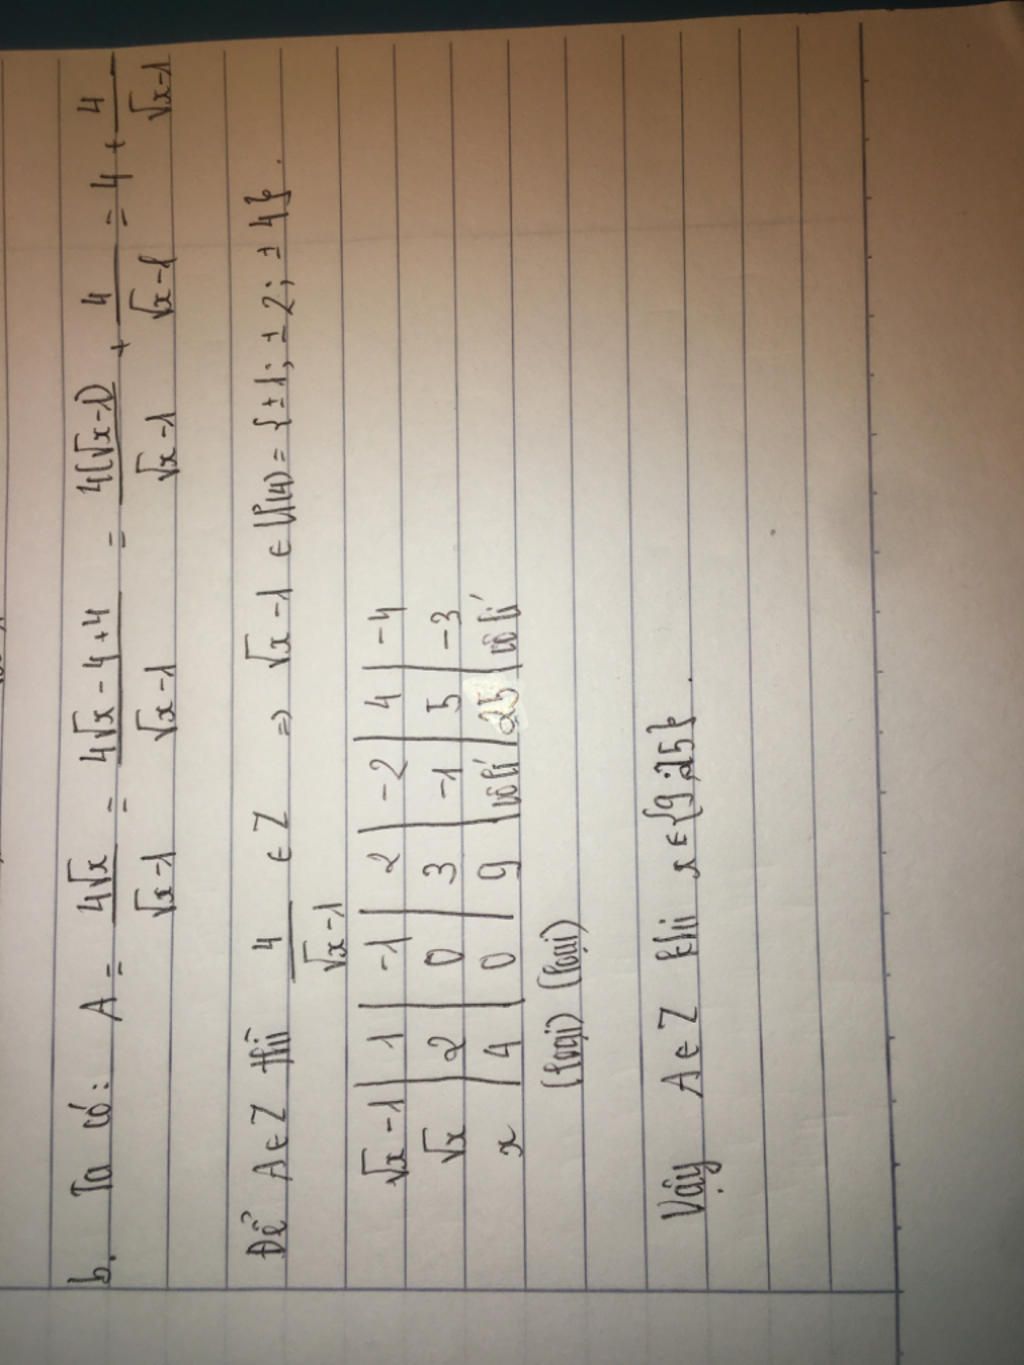 b. Ta có: A = 4√x / √x-1 = 4√x - 4 + 4 / √x-1 = 4(√x-1) / √x-1 + 4 / √x-1 = 4 + 4 / √x-1
Để A ∈ Z thì 4 / √x-1 ∈ Z => √x - 1 ∈ Ư(4) = {±1; ±2; ±4}.
√x - 1 | 1 | -1 | 2 | -2 | 4 | -4
√x | 2 | 0 | 3 | -1 | 5 | -3
x | 4 | 0 | 9 | vôlí | 25 | vôlí
(loại) (loại)
Vậy A ∈ Z khi x ∈ {9;25}.